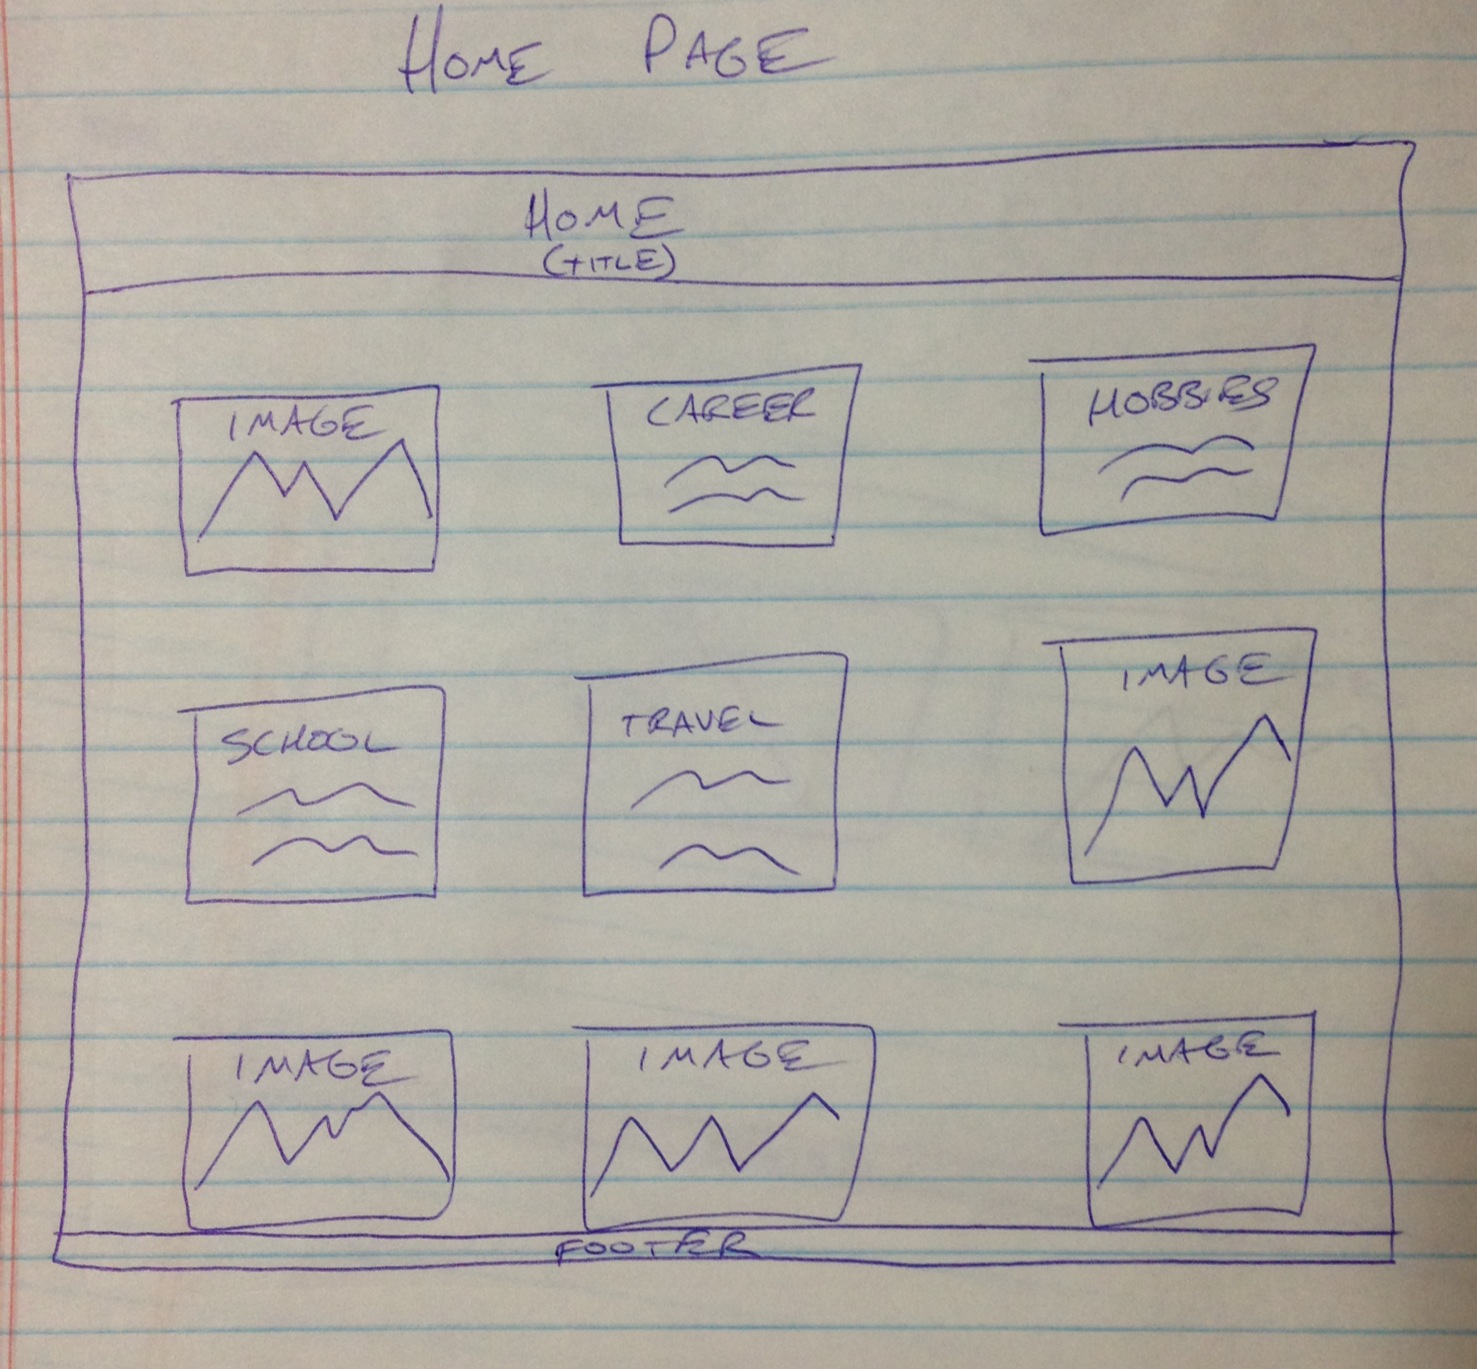 HOME PAGE
HOME
(TITLE)
IMAGE
CAREER
HOBBIES
SCHOOL
TRAVEL
IMAGE
IMAGE
IMAGE
IMAGE
FOOTER